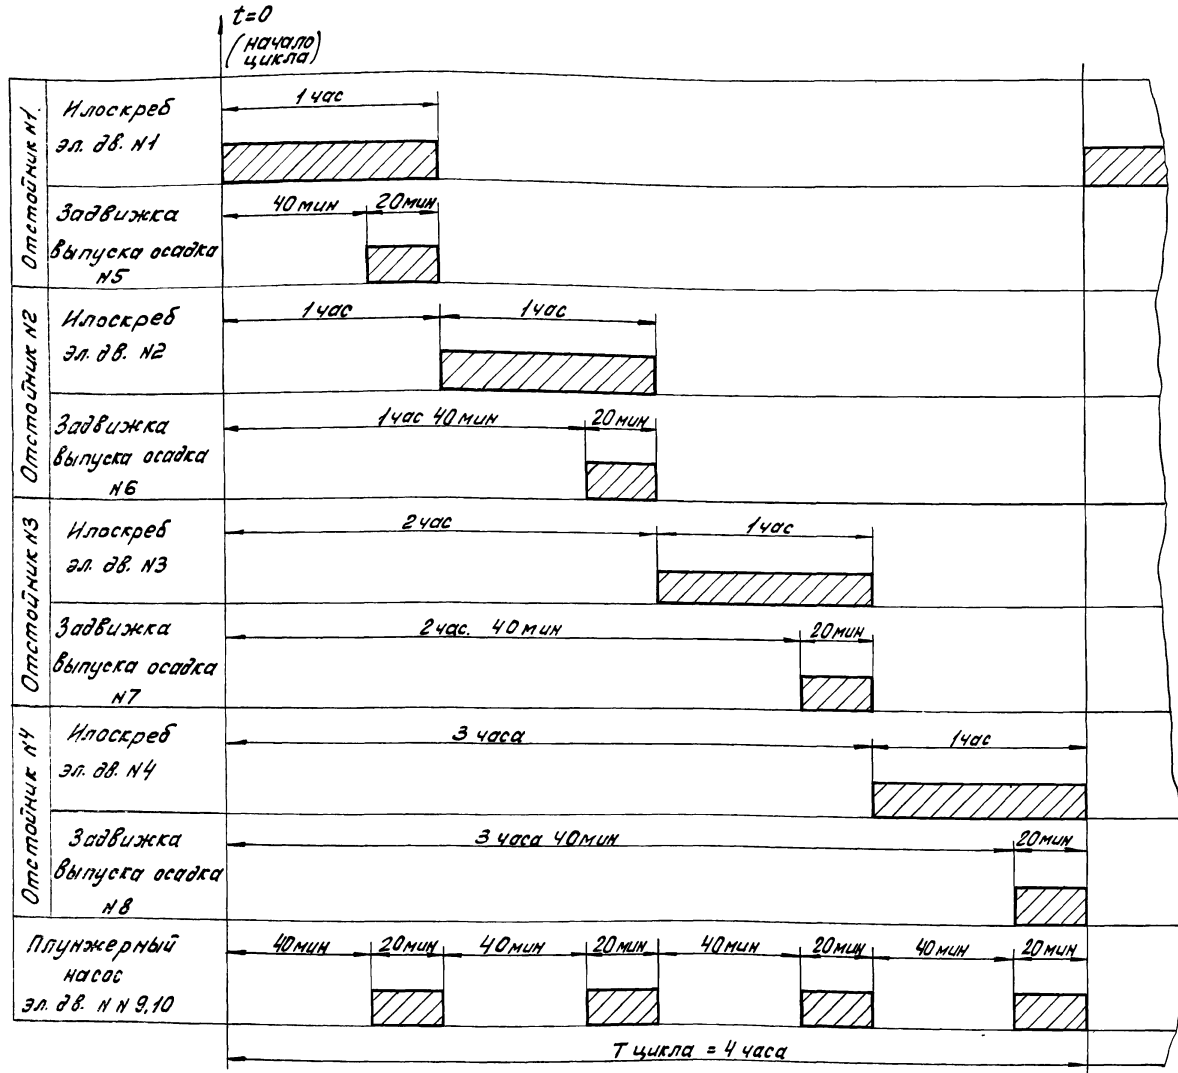 t=0
(начало
цикла)
Отстойник N1.
Илоскреб
эл. дв. N1
1 час
Задвижка
выпуска осадка
N5
40 мин
20 мин
Отстойник N2
Илоскреб
эл. дв. N2
1 час
1 час
Задвижка
выпуска осадка
N6
1 час 40 мин
20 мин
Отстойник N3
Илоскреб
эл. дв. N3
2 час
1 час
Задвижка
выпуска осадка
N7
2 час. 40 мин
20 мин
Отстойник N4
Илоскреб
эл. дв. N4
3 часа
1 час
Задвижка
выпуска осадка
N8
3 часа 40 мин
20 мин
Плунжерный
насос
эл. дв. N N 9,10
40 мин
20 мин
40 мин
20 мин
40 мин
20 мин
40 мин
20 мин
T цикла = 4 часа